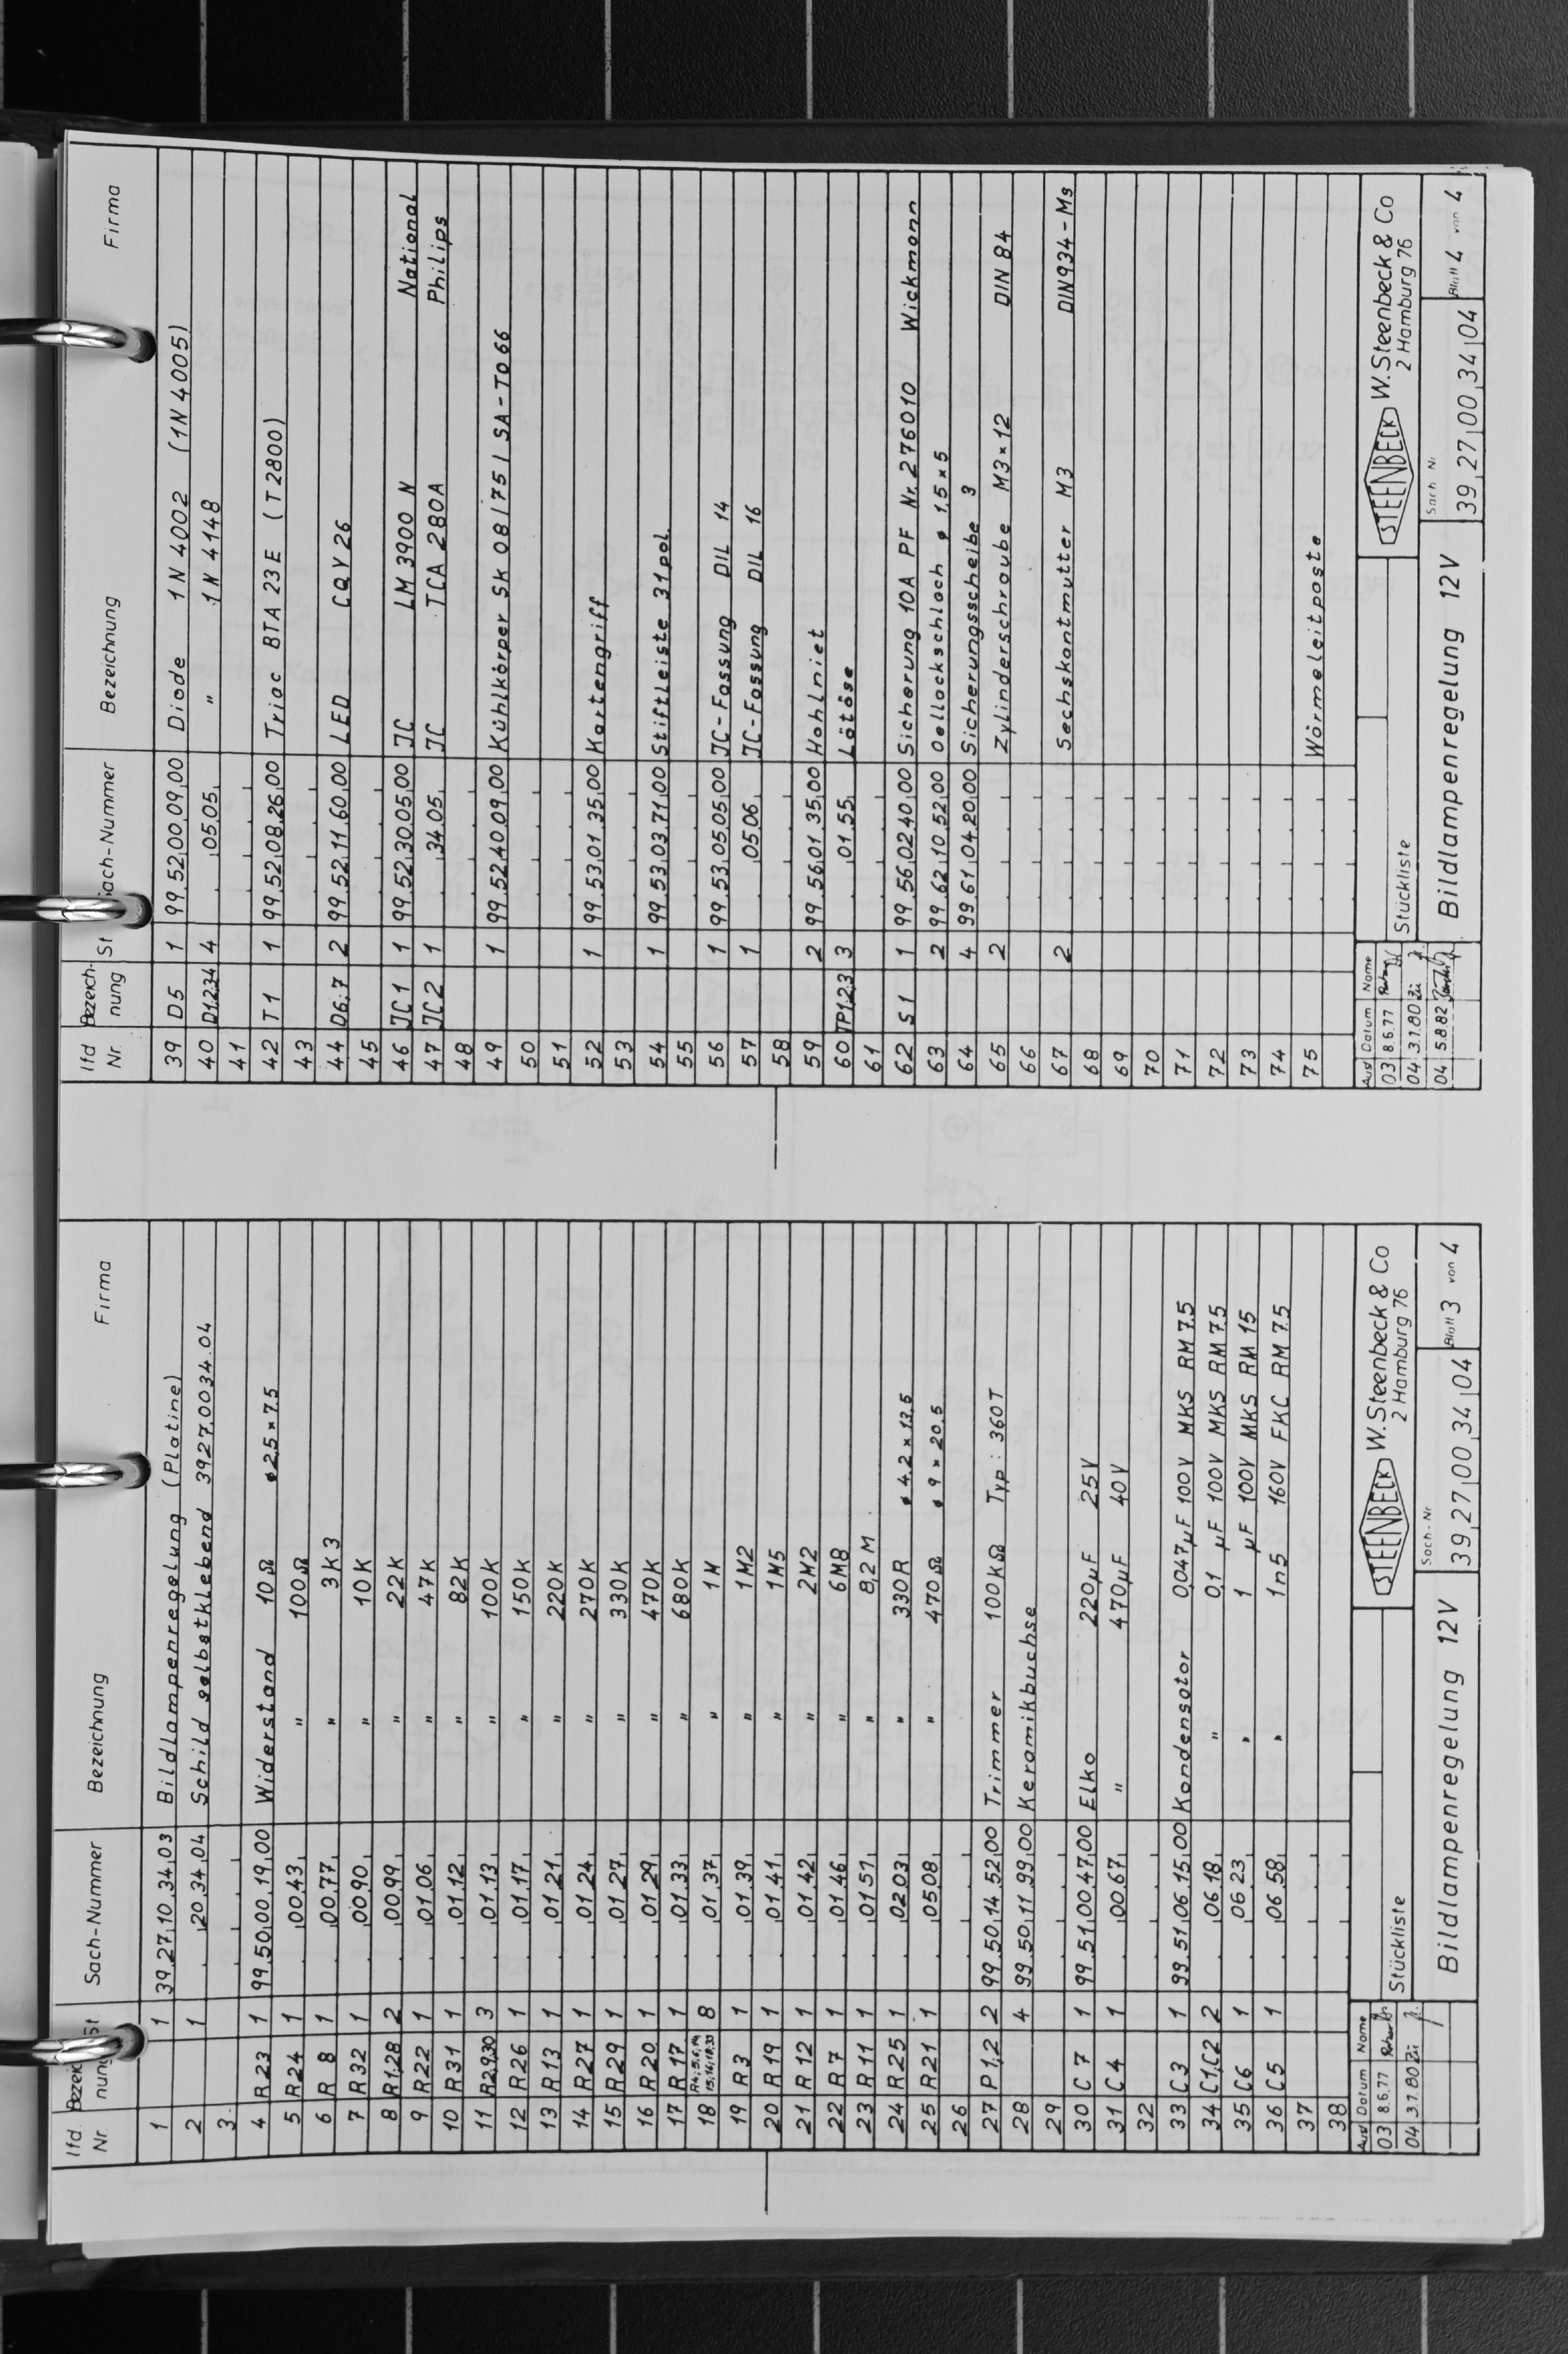 lfd. Nr. Bezeichnung St Sach-Nummer Bezeichnung Firma
1 1 39.27.10.34.03 Bildlampenregelung (Platine)
2 1 20.34.04 Schild selbstklebend 3927.0034.04
3
4 R23 1 99.50.00.19.00 Widerstand 10Ω ø2,5×7,5
5 R24 1 00.43. " 100Ω
6 R8 1 00.77. " 3k3
7 R32 1 00.90. " 10K
8 R1,28 2 00.99. " 22K
9 R22 1 01.06. " 47K
10 R31 1 01.12. " 82K
11 R2,9,30 3 01.13. " 100K
12 R26 1 01.17. " 150K
13 R13 1 01.21. " 220K
14 R27 1 01.24. " 270K
15 R29 1 01.27. " 330K
16 R20 1 01.29. " 470K
17 R17 1 01.33. " 680K
18 8 01.37. " 1M
19 R3 1 01.39. " 1M2
20 R19 1 01.41. " 1M5
21 R12 1 01.42. " 2M2
22 R7 1 01.46. " 6M8
23 R11 1 01.51. " 8,2M
24 R25 1 02.03. " 330R ø 4,2×13,5
25 R21 1 05.08. " 470Ω ø 9×20,5
26
27 P1,2 2 99.50.14.52.00 Trimmer 100KΩ Typ: 360T
28 4 99.50.11.99.00 Keramikbuchse
29
30 C7 1 99.51.00.47.00 Elko 220µF 25V
31 C4 1 00.67. " 470µF 40V
32
33 C3 1 99.51.06.15.00 Kondensator 0,047µF 100V MKS RM 7,5
34 C1,C2 2 06.18. " 0,1 µF 100V MKS RM 7,5
35 C6 1 06.23 " 1 µF 100V MKS RM 15
36 C5 1 06.58. " 1n5 160V FKC RM 7,5
37
38
Aus Datum Name
03 8.6.77
04 3.1.80 Zü
Stückliste
STEENBECK W. Steenbeck & Co
2 Hamburg 76
Bildlampenregelung 12V
Sach-Nr
39.27.00.34.04
Blatt 3 von 4
lfd Nr. Bezeichnung St Sach-Nummer Bezeichnung Firma
39 D5 1 99.52.00.09.00 Diode 1N4002 (1N4005)
40 D1,2,3,4 4 05.05. " 1N4148
41
42 T1 1 99.52.08.26.00 Triac BTA 23E (T2800)
43
44 D6;7 2 99.52.11.60.00 LED CQV26
45
46 JC1 1 99.52.30.05.00 JC LM 3900 N National
47 JC2 1 34.05. JC TCA 280A Philips
48
49 1 99.52.40.09.00 Kühlkörper SK 08/75/SA-TO66
50
51
52 1 99.53.01.35.00 Kartengriff
53
54 1 99.53.03.71.00 Stiftleiste 31pol.
55
56 1 99.53.05.05.00 JC-Fassung DIL 14
57 1 05.06. JC-Fassung DIL 16
58
59 2 99.56.01.35.00 Hohlniet
60 TP1,2,3 3 01.55. Lötöse
61
62 S1 1 99.56.02.40.00 Sicherung 10A PF Nr. 276010 Wickmann
63 2 99.62.10.52.00 Oellackschlach ø 1,5×5
64 4 99.61.04.20.00 Sicherungsscheibe 3
65 2 Zylinderschraube M3×12 DIN 84
66
67 2 Sechskantmutter M3 DIN934-Ms
68
69
70
71
72
73
74
75 Wärmeleitpaste
Aus Datum Name
03 8.6.77
04 3.1.80 Zü
04 5.8.82
Stückliste
STEENBECK W. Steenbeck & Co
2 Hamburg 76
Bildlampenregelung 12V
Sach-Nr
39.27.00.34.04
Blatt 4 von 4